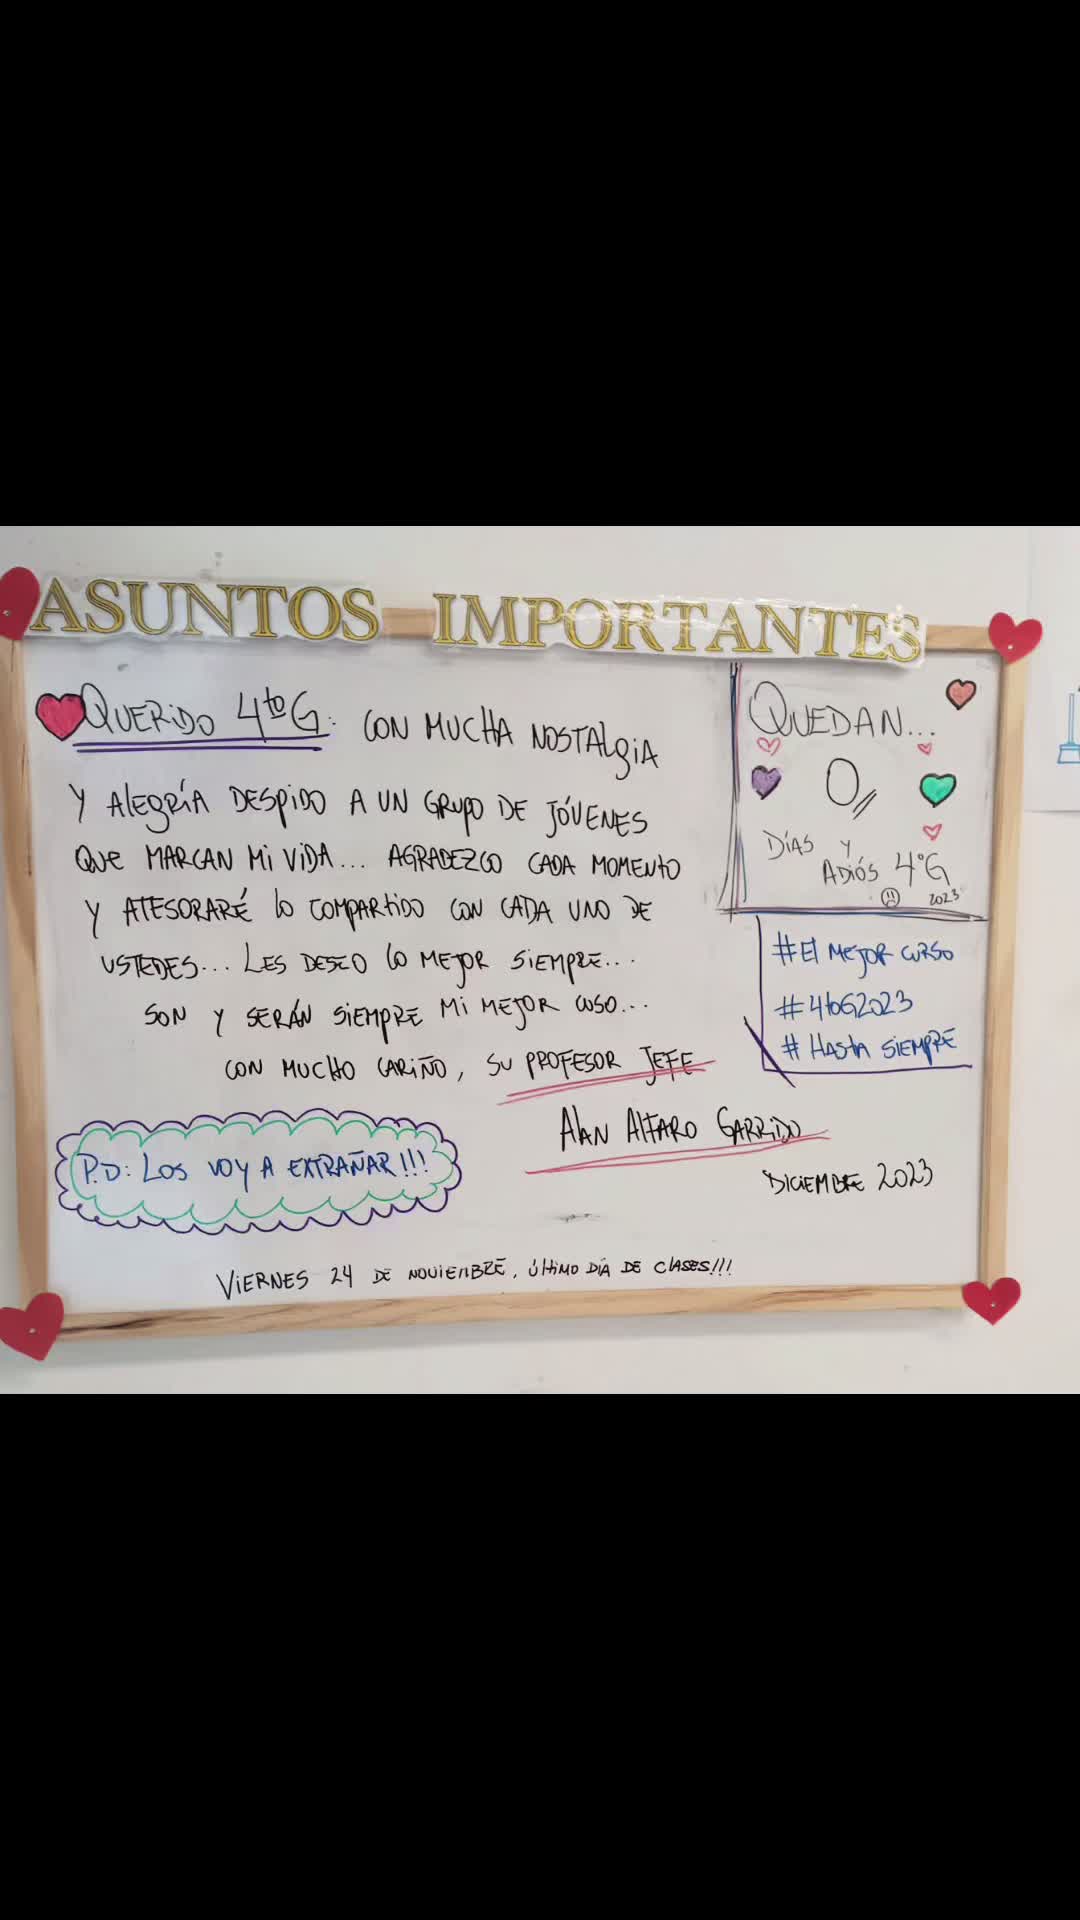 ASUNTOS IMPORTANTES
QUERIDO 4to G: CON MUCHA NOSTALGIA
Y ALEGRÍA DESPIDO A UN GRUPO DE JÓVENES
QUE MARCAN MI VIDA... AGRADEZCO CADA MOMENTO
Y ATESORARÉ LO COMPARTIDO CON CADA UNO DE
USTEDES... LES DESEO LO MEJOR SIEMPRE...
SON Y SERÁN SIEMPRE MI MEJOR CUSO...
CON MUCHO CARIÑO, SU PROFESOR JEFE
ALAN ALFARO GARRIDO
DICIEMBRE 2023
P.D: LOS VOY A EXTRAÑAR!!!
VIERNES 24 DE NOVIEMBRE, ÚLTIMO DÍA DE CLASES!!!
QUEDAN...
0
DÍAS Y
ADIÓS 4°G
2023
#El MEJOR CURSO
#4toG2023
# HASTA SIEMPRE